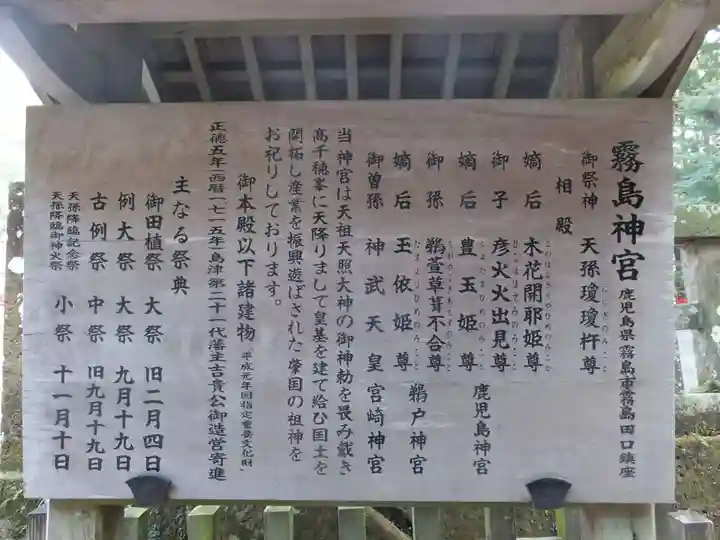 霧島神宮 鹿児島県霧島市霧島田口鎮座
御祭神 天孫瓊瓊杵尊
相殿
嫡后 木花開耶姫尊
御子 彦火火出見尊
嫡后 豊玉姫尊 鹿児島神宮
御孫 鵜萱草葺不合尊
嫡后 玉依姫尊 鵜戸神宮
御曽孫 神武天皇 宮崎神宮
当神宮は天祖天照大神の御神勅を畏み戴き
高千穂峯に天降りまして皇基を建て給ひ国土を
開拓し産業を振興遊ばされた肇国の祖神を
お祀りしております。
御本殿以下諸建物(平成元年国指定重要文化財)
正徳五年(西暦(七一五年)島津第二十一代藩主吉貴公御造営寄進
主なる祭典
御田植祭 大祭 旧二月四日
例大祭 大祭 九月十九日
古例祭 中祭 旧九月十九日
天孫降臨記念祭
天孫降臨御神火祭 小祭 十一月十日